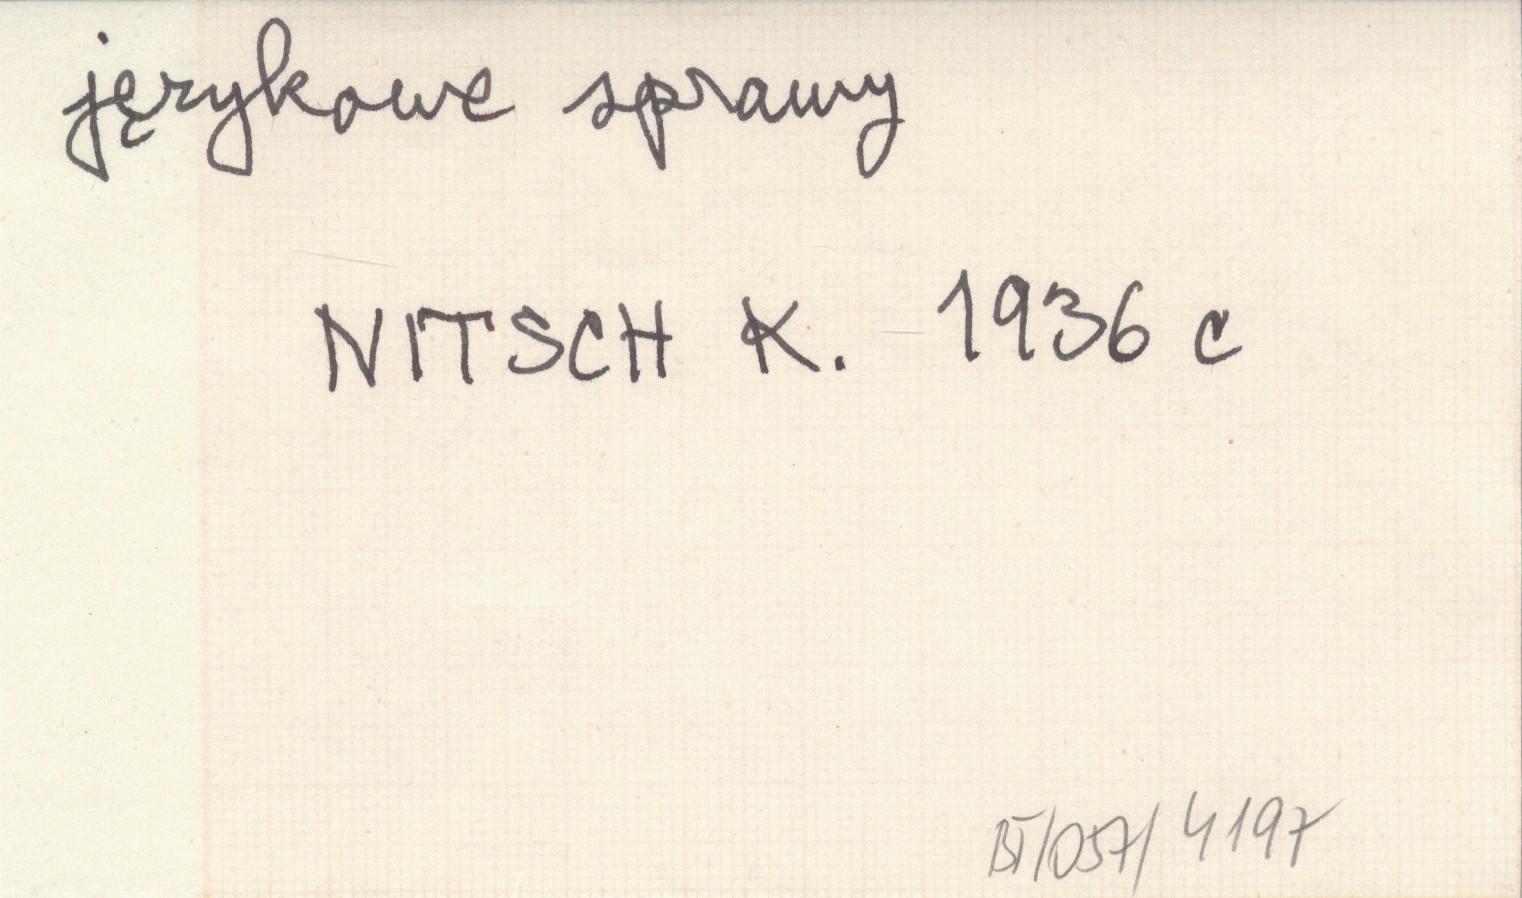 językowe sprawy
NITSCH K. 1936 c
BT/057/4197